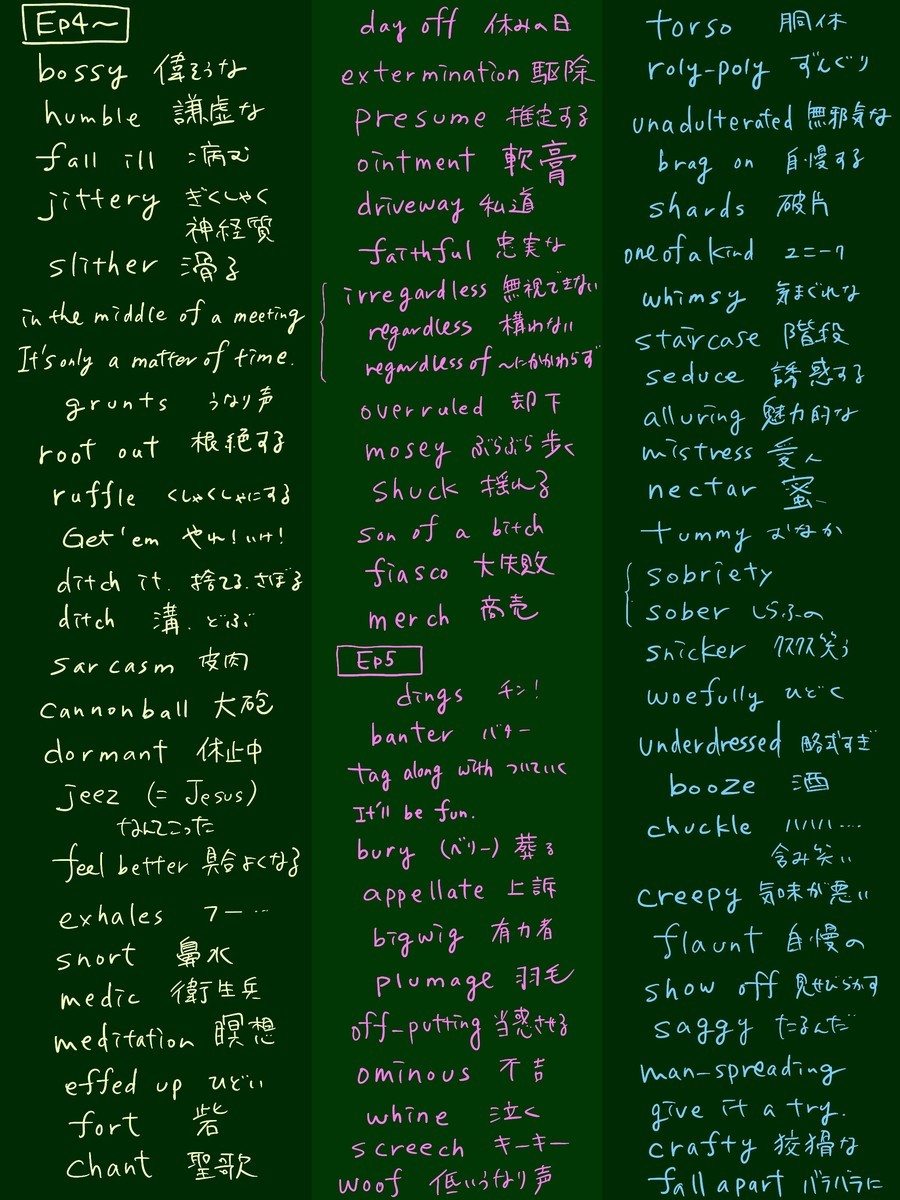 Ep4〜
bossy 偉そうな
humble 謙虚な
fall ill 病む
jittery ぎくしゃく
神経質
slither 滑る
in the middle of a meeting
It's only a matter of time.
grunts うなり声
root out 根絶する
ruffle くしゃくしゃにする
Get 'em やれ!いけ!
ditch it. 捨てる.さぼる
ditch 溝.どぶ
sarcasm 皮肉
cannonball 大砲
dormant 休止中
jeez (= Jesus)
なんてこった
feel better 具合よくなる
exhales フー…
snort 鼻水
medic 衛生兵
meditation 瞑想
effed up ひどい
fort 砦
chant 聖歌
day off 休みの日
extermination 駆除
presume 推定する
ointment 軟膏
driveway 私道
faithful 忠実な
irregardless 無視できない
regardless 構わない
regardless of 〜にかかわらず
overruled 却下
mosey ぶらぶら歩く
shuck 揺れる
son of a bitch
fiasco 大失敗
merch 商売
Ep5
dings チン!
banter バター
tag along with ついていく
It'll be fun.
bury (ベリー) 葬る
appellate 上訴
bigwig 有力者
plumage 羽毛
off-putting 当惑させる
ominous 不吉
whine 泣く
screech キーキー
woof 低いうなり声
torso 胴体
roly-poly ずんぐり
unadulterated 無邪気な
brag on 自慢する
shards 破片
one of a kind ユニーク
whimsy 気まぐれな
staircase 階段
seduce 誘惑する
alluring 魅力的な
mistress 愛人
nectar 蜜
tummy おなか
sobriety
sober しらふの
snicker クスクス笑う
woefully ひどく
underdressed 略式すぎ
booze 酒
chuckle ハハハ…
含み笑い
creepy 気味が悪い
flaunt 自慢の
show off 見せびらかす
saggy たるんだ
man-spreading
give it a try.
crafty 狡猾な
fall apart バラバラに